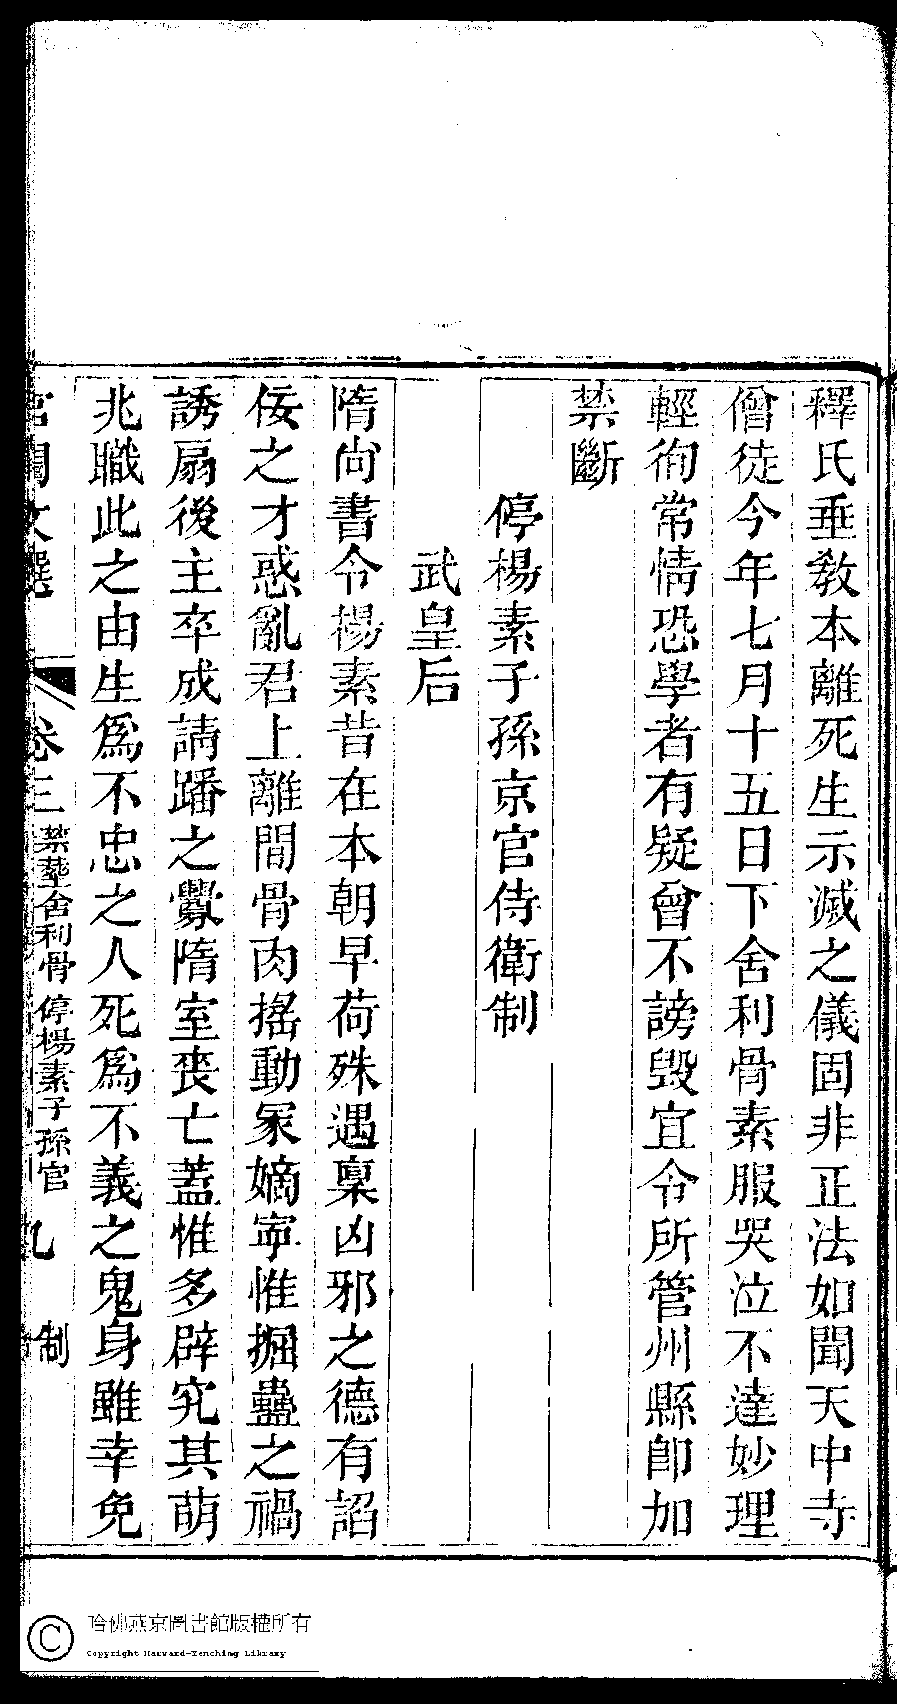 釋氏垂敎本離死生示滅之儀固非正法如聞天中寺
僧徒今年七月十五日下舍利骨素服哭泣不達妙理
輕徇常情恐學者有疑曾不謗毁宜令所管州縣卽加
禁斷
停楊素子孫京官侍衛制
武皇后
隋尚書令楊素昔在本朝早荷殊遇稟凶邪之德有諂
佞之才惑亂君上離間骨肉搖動冢嫡寧惟掘蠱之禍
誘扇後主卒成請蹯之釁隋室喪亡蓋惟多辟究其萌
兆職此之由生爲不忠之人死爲不義之鬼身雖幸免
宮閨文選
卷三
禁塟舍利骨 停楊素子孫官
九
制
哈佛燕京圖書館版權所有
Copyright Harvard-Yenching Library